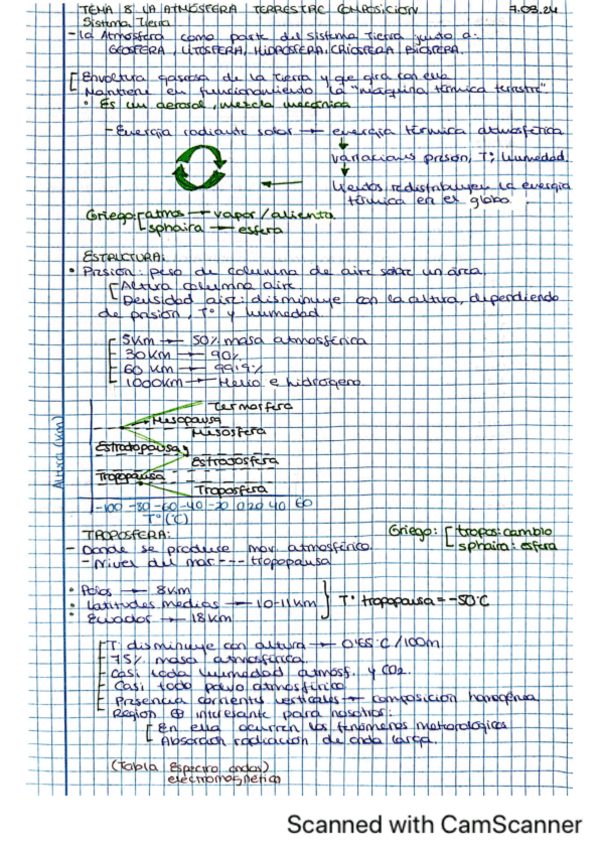 TEMA 8: LA ATMÓSFERA TERRESTRE COMPOSICIÓN 7.03.24
Sistema Tierra
- La Atmósfera como parte del sistema Tierra junto a:
GEOSFERA, LITOSFERA, HIDROSFERA, CRIOSFERA, BIOSFERA.
Envoltura gaseosa de la Tierra y qe gira con ella
Mantiene en funcionamiento la "máquina térmica terrestre".
• Es un aerosol, mezcla mecánica
- Energía radiante solar → energía térmica atmosférica
variaciones presión, Tª, humedad.
Vientos redistribuyen la energía
térmica en el globo
Griego: atmos → vapor/aliento.
sphaira → esfera
ESTRUCTURA:
• Presión: peso de columna de aire sobre un área.
Altura columna aire.
Densidad aire: disminuye con la altura, dependiendo
de presión, Tº y humedad
5Km → 50% masa atmosférica
30Km → 90%
60 Km → 99'9%
1000Km → Helio e hidrógeno
Termosfera
Mesopausa
Mesosfera
Estratopausa
Estratosfera
Tropopausa
Troposfera
Altura (Km)
-100 -80 -60 -40 -20 0 20 40 60
Tº (C)
TROPOSFERA:
Griego: tropos: cambio
sphaira: esfera
- Donde se produce mov. atmosférico.
- Nivel del mar --- tropopausa
• Polos → 8Km
• Latitudes medias → 10-11Km
• Ecuador → 18Km
Tº tropopausa = -50ºC
T disminuye con altura → 0'65ºC/100m.
75% masa atmosférica.
Casi toda humedad atmósf. y CO2.
Casi todo polvo atmosférico
Presencia corrients verticales → composición homogénea
Región ⊕ interesante para nosotros:
En ella ocurren los fenómenos meteorológicos
Absorción radiación de onda larga.
(Tabla Espectro ondas)
electromagnético
Scanned with CamScanner